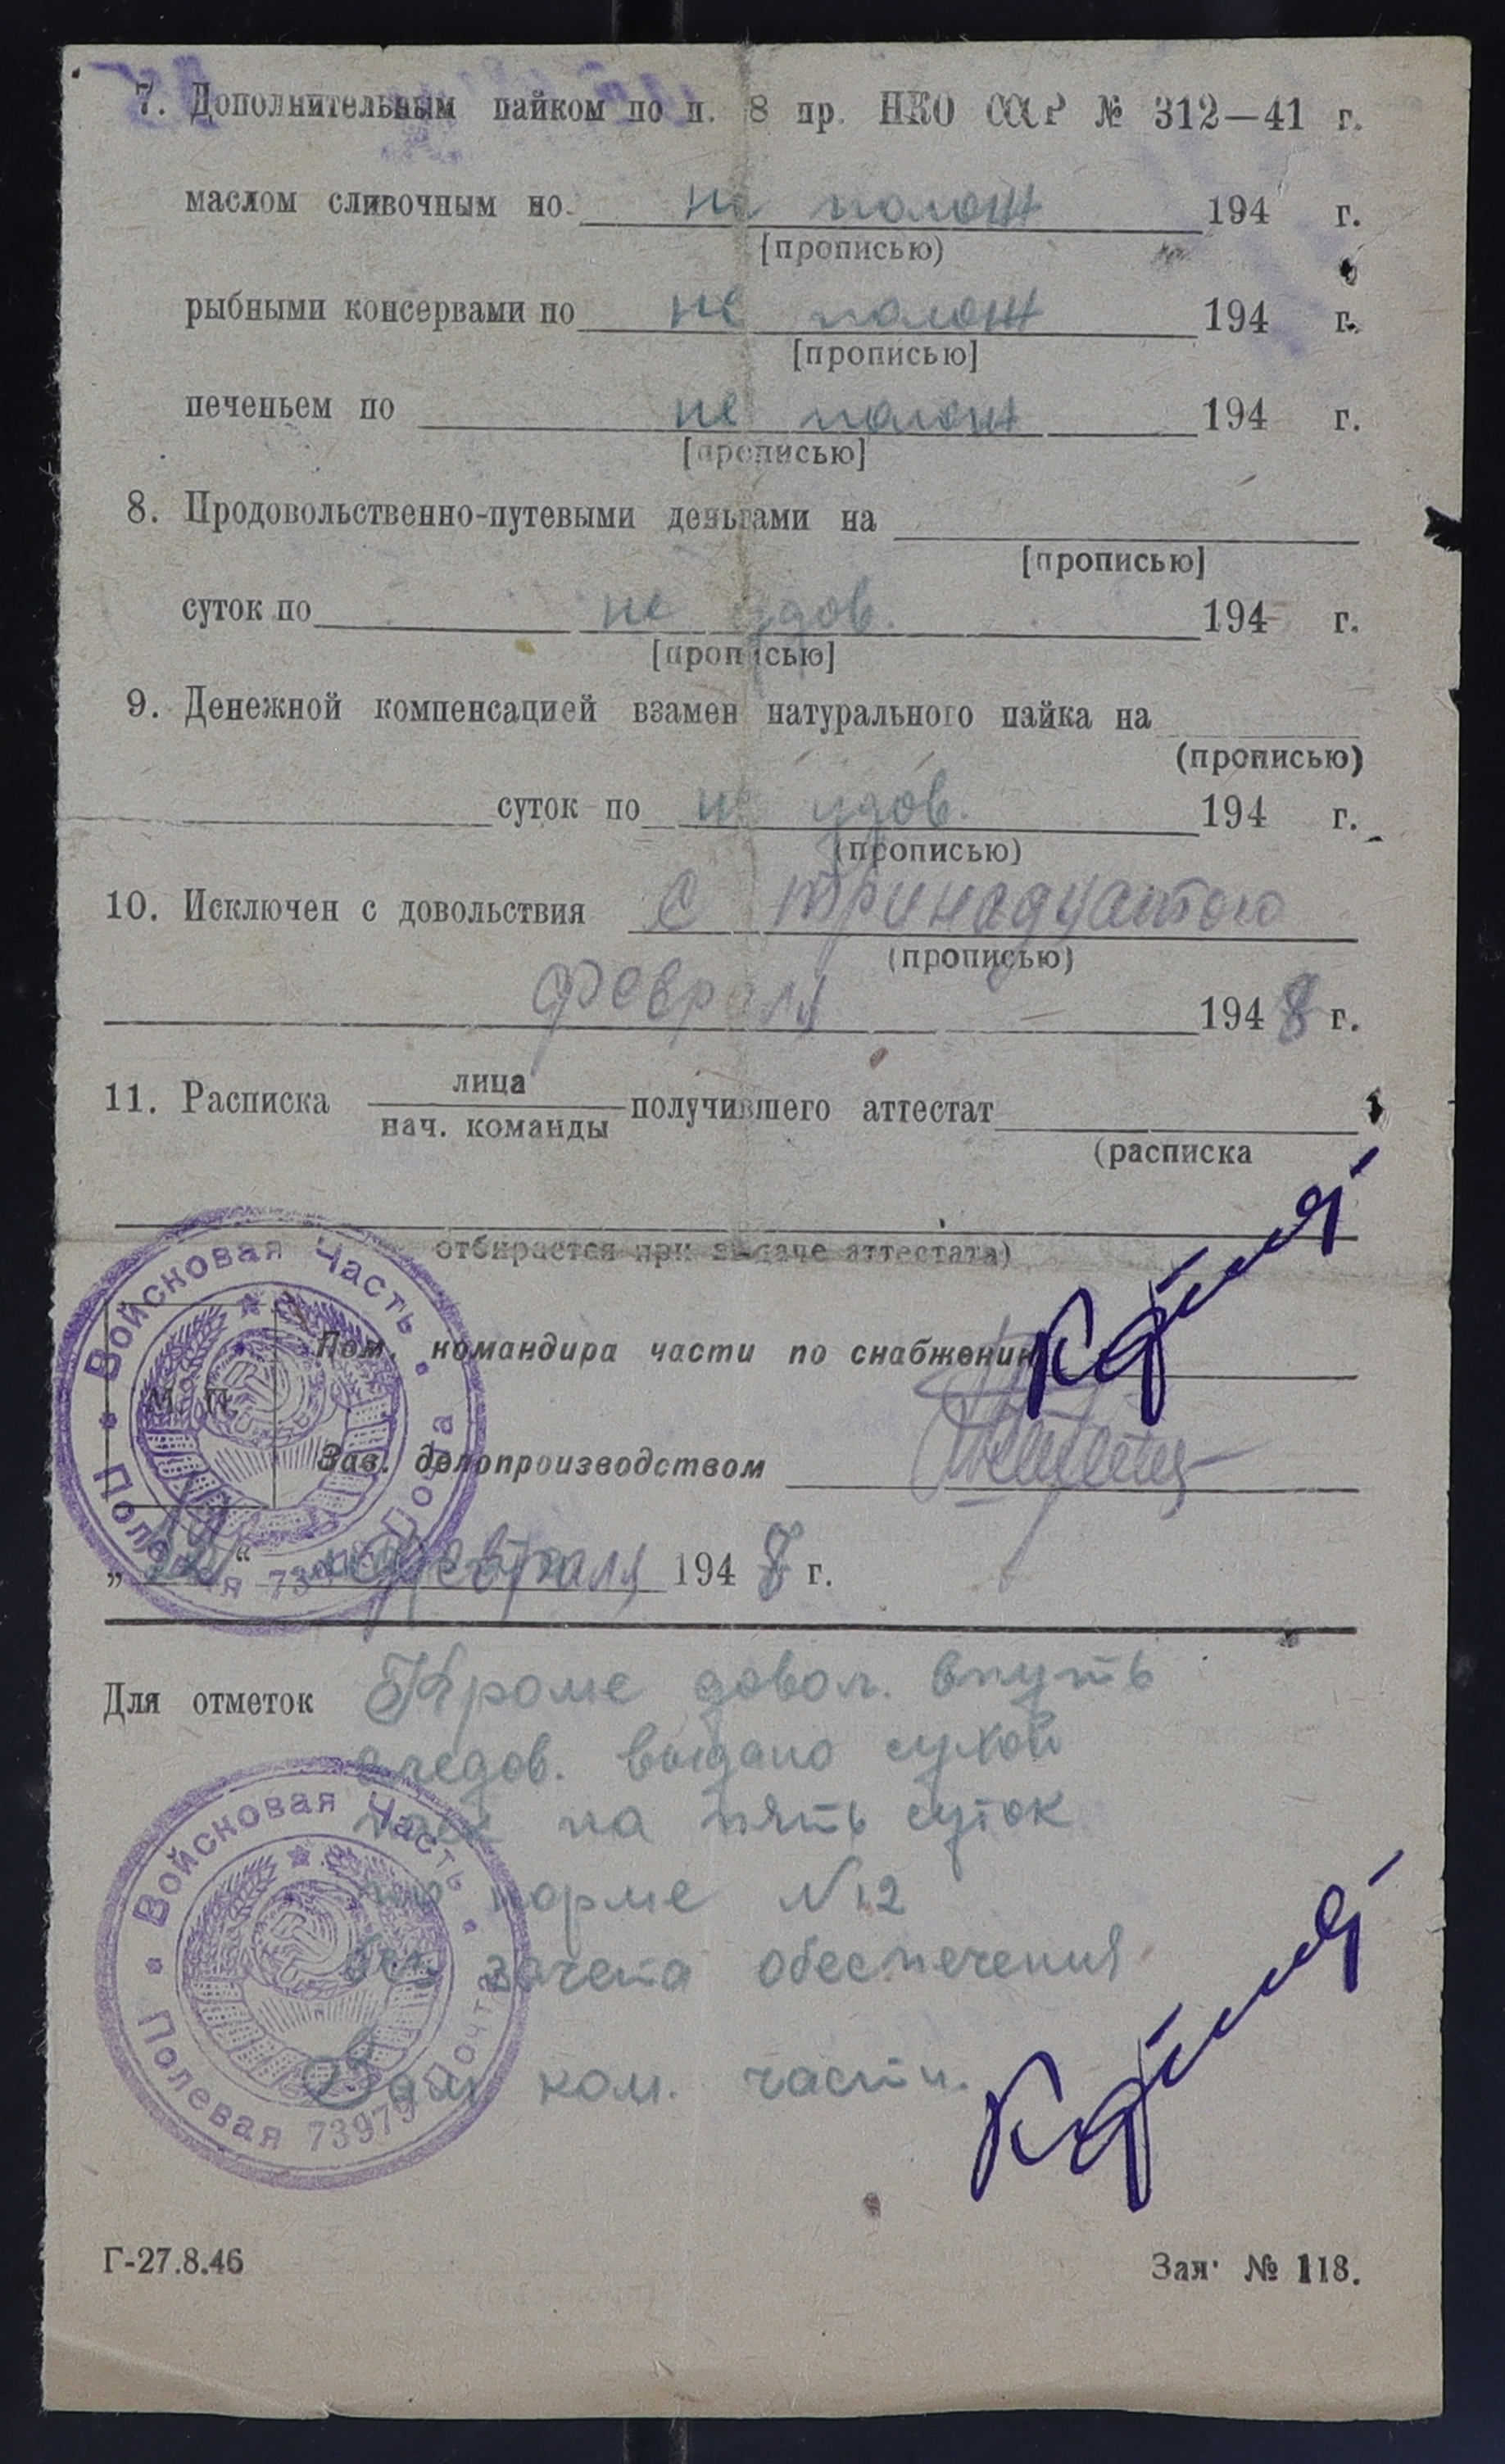 7. Дополнительным пайком по п. 8 пр. НКО СССР № 312—41 г.
маслом сливочным по не полож 194 г.
(прописью)
рыбными консервами по не полож 194 г.
[прописью]
печеньем по не полож 194 г.
[прописью]
8. Продовольственно-путевыми деньгами на
[прописью]
суток по не удов. 194 г.
[прописью]
9. Денежной компенсацией взамен натурального пайка на
(прописью)
суток по не удов. 194 г.
(прописью)
10. Исключен с довольствия с тринадцатого
(прописью)
февраля 1948 г.
11. Расписка лица
нач. команды получившего аттестат
(расписка
отбирается при выдаче аттестата)
Войсковая Часть
Полевая Почта
М. П.
Пом. командира части по снабжению
Зав. делопроизводством
„ “ февраля 1948 г.
Для отметок Кроме довол. в путь
след. выдано сухой
паек на пять суток
по норме №12
без зачета обеспечения
Зам ком. части.
Войсковая Часть
Полевая Почта 73979
Г-27.8.46
Зак. № 118.